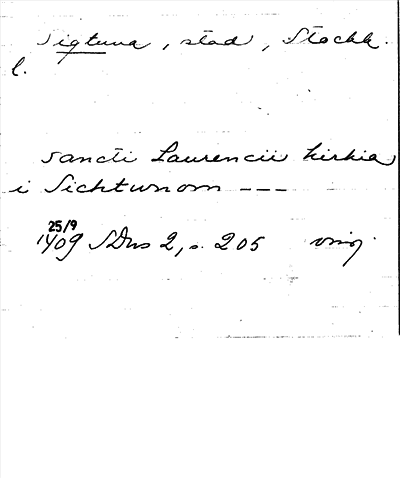 Sigtuna, stad, Stockh.
l.
sancti Laurencii kirkia
i Sichtunom ---
25/9
1409 SDns 2, s. 205 orig.